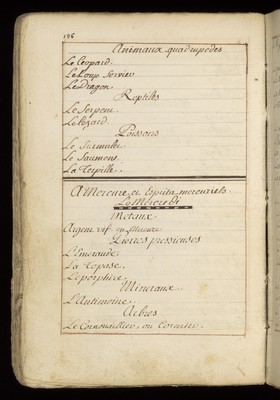 196
Animaux quadrupedes
Le Leopard.
Le Loup Servier
Le Dragon.
Reptilles
Le Serpent.
Le Lezard.
Poissons
Le Surmulet.
Le Saumons.
La Torpille.
A Mercure et Esprits mercuriels
Le Mercredi
Metaux
Argent vif ou Mercure
Pierres pressieuses
L'Emeraude.
La Topase.
Le porphire.
Mineraux.
L'Antimoine.
Arbres
Le Cornouaillier, ou Cormier.